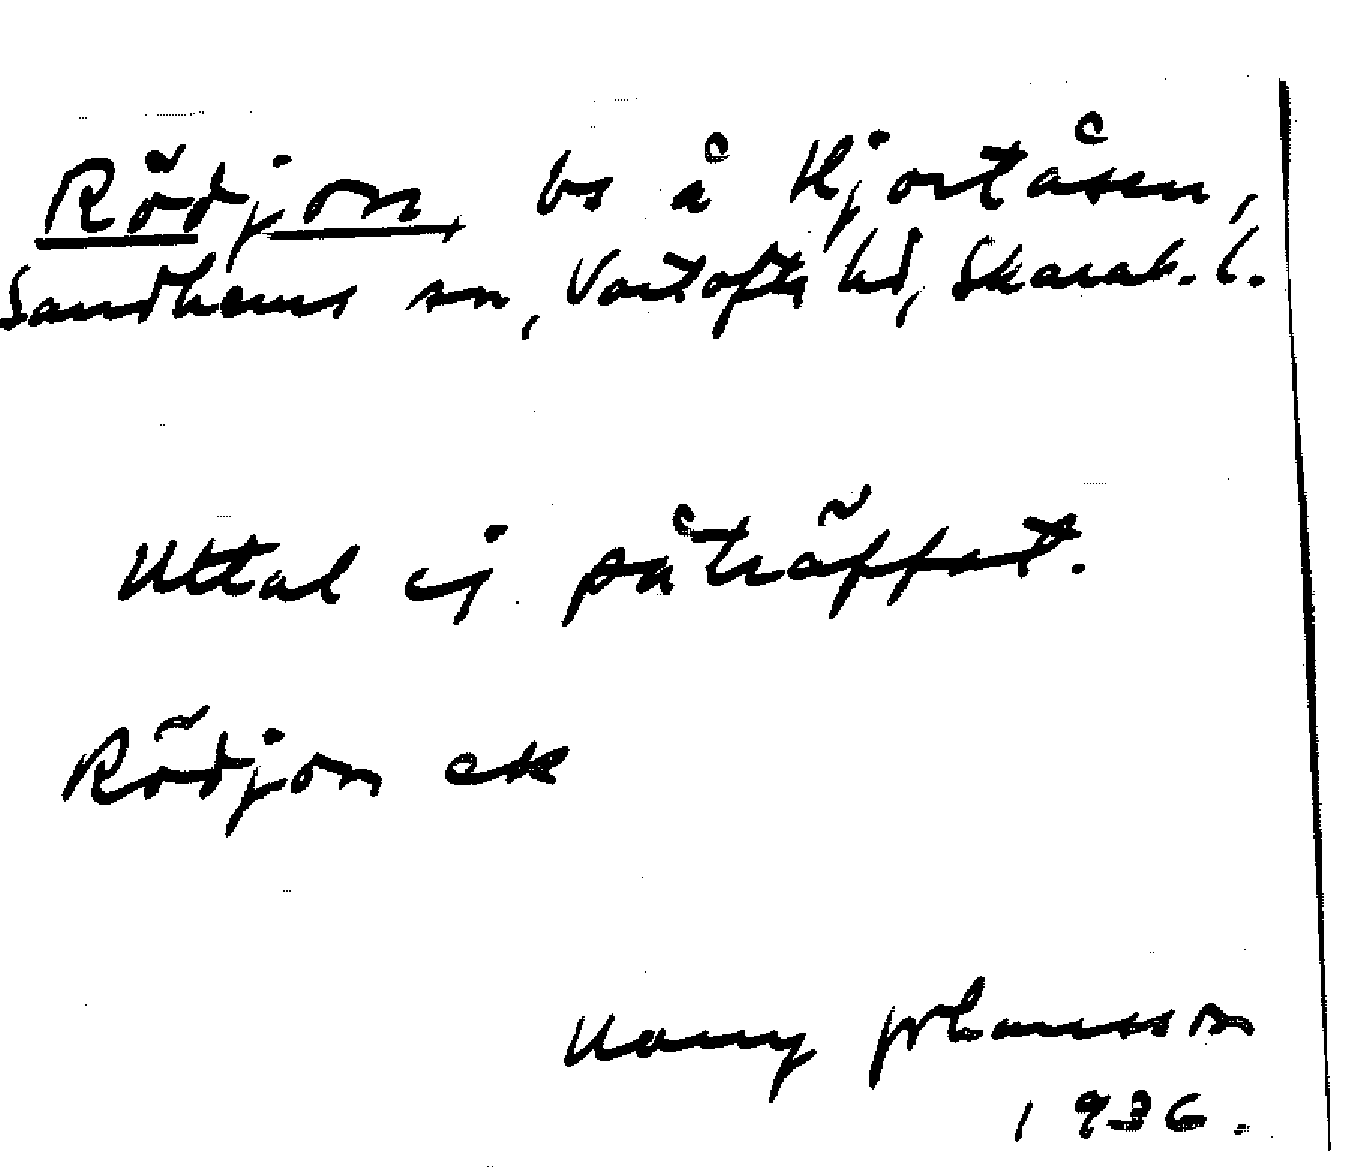 Rödjorn, bs å Hjortåsen,
Sandhems sn, Vartofta hd, Skarab. l.
Uttal ej påträffat.
Rödjorn ek
Harry Johansson
1936.